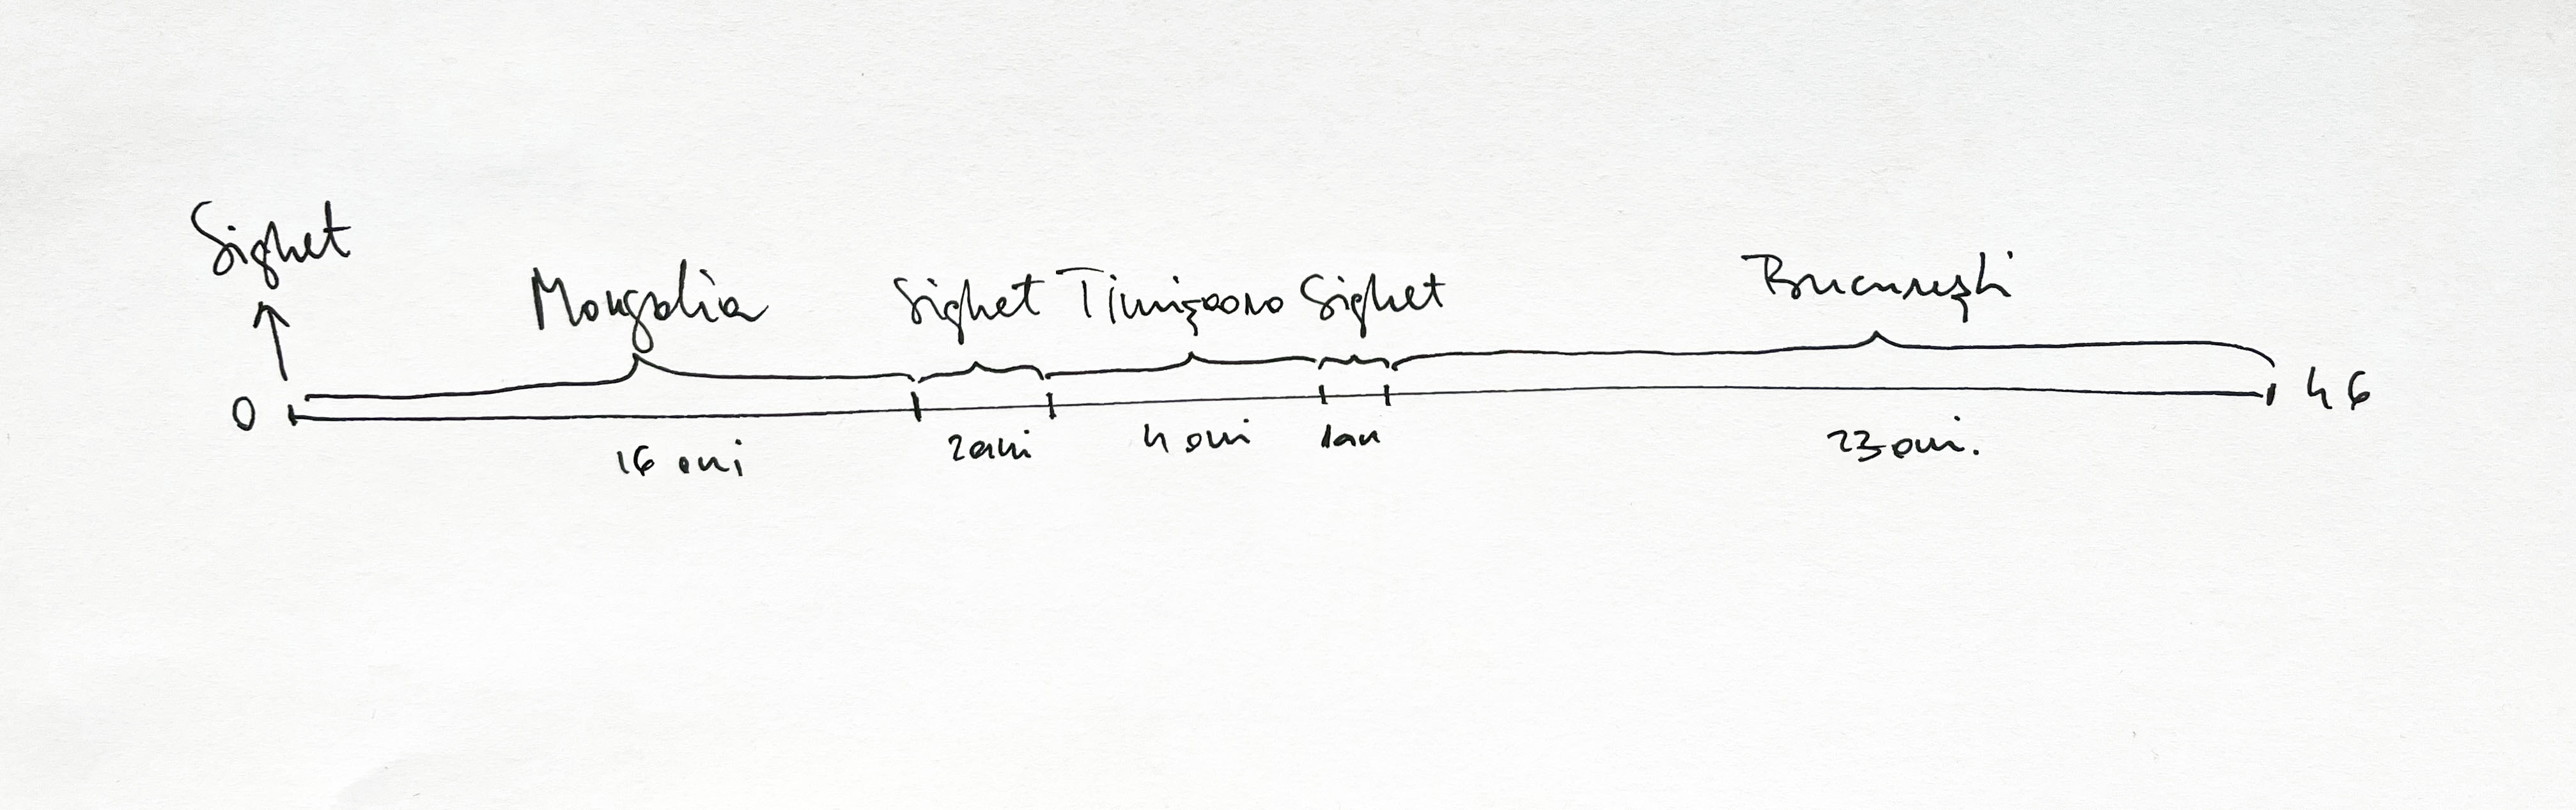 Sighet
Mongolia Sighet Timișoara Sighet București
0 46
16 ani 2ani 4 ani 1an 23 ani.